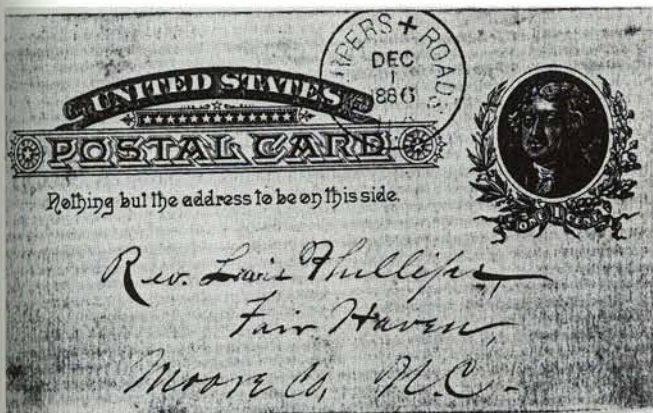 RPERS + ROADS
DEC
1
1886
UNITED STATES
POSTAL CARD
Nothing but the address to be on this side.
Rev. Lewis Phillips,
Fair Haven,
Moore Co, N.C.